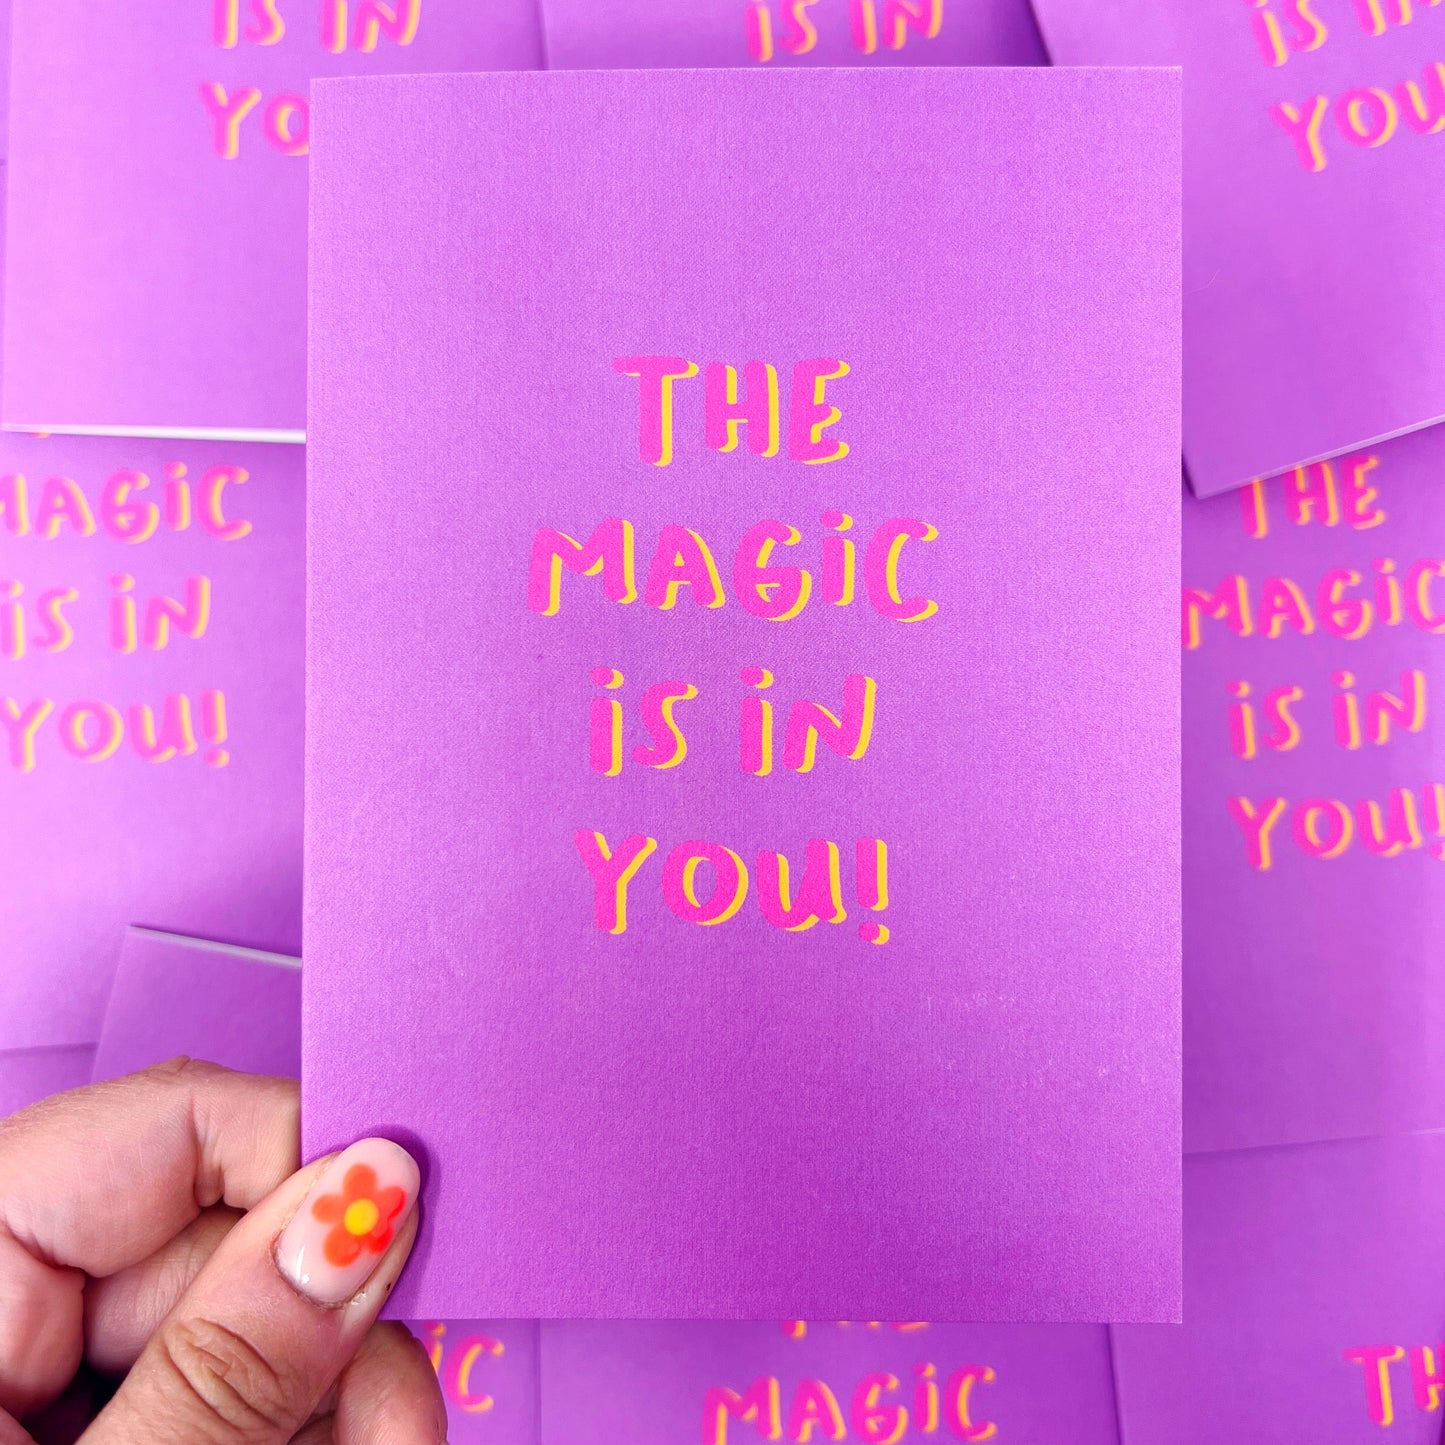 THE
MAGiC
iS iN
YOU!
iS iN
YO
iS iN
iS iN
YOU
MAGiC
iS iN
YOU!
THE
MAGiC
iS iN
YOU!
iC
MAGiC
TH